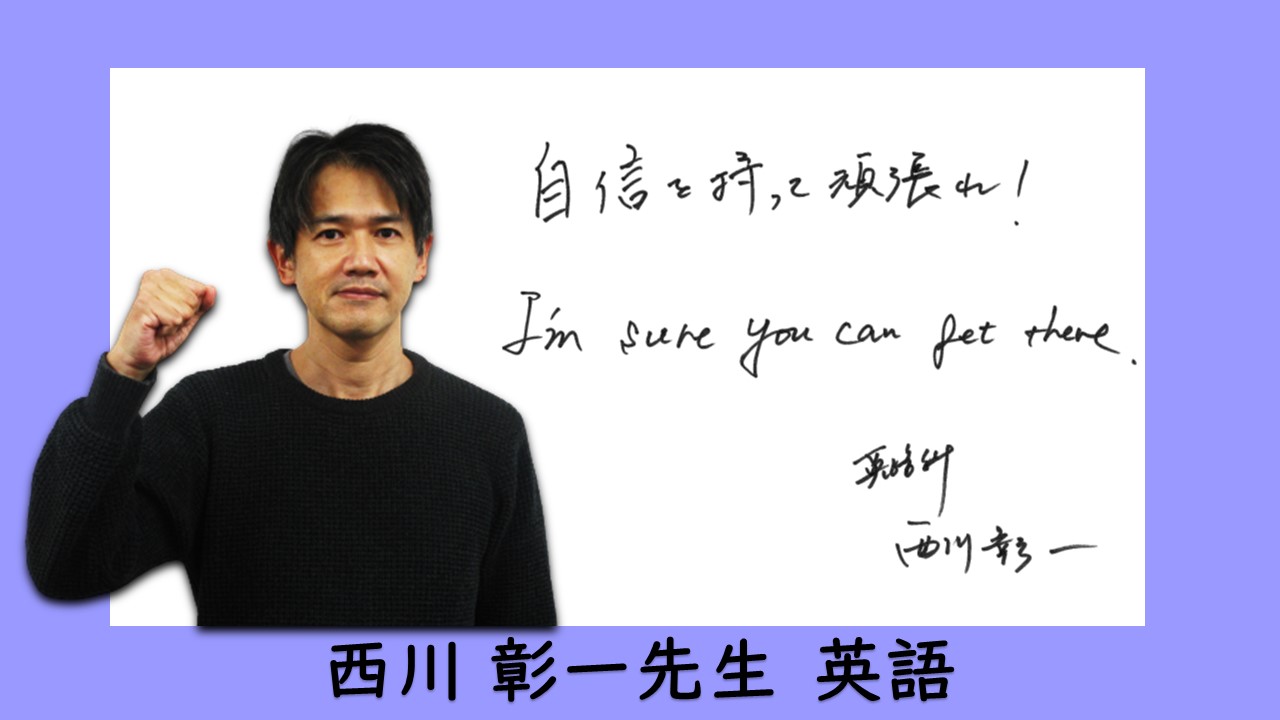 自信を持って頑張れ!
I'm sure you can get there.
英語科
西川彰一
西川 彰一先生 英語